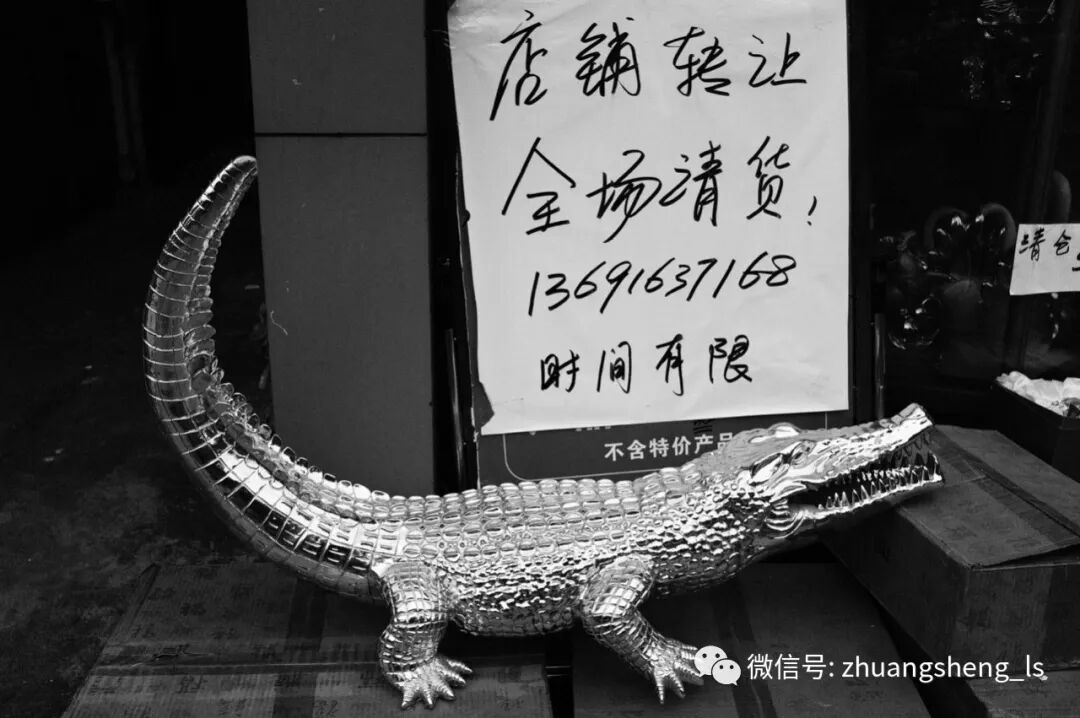 店铺转让
全场清货!
13691637168
时间有限
不含特价产品
清仓
微信号: zhuangsheng_ls